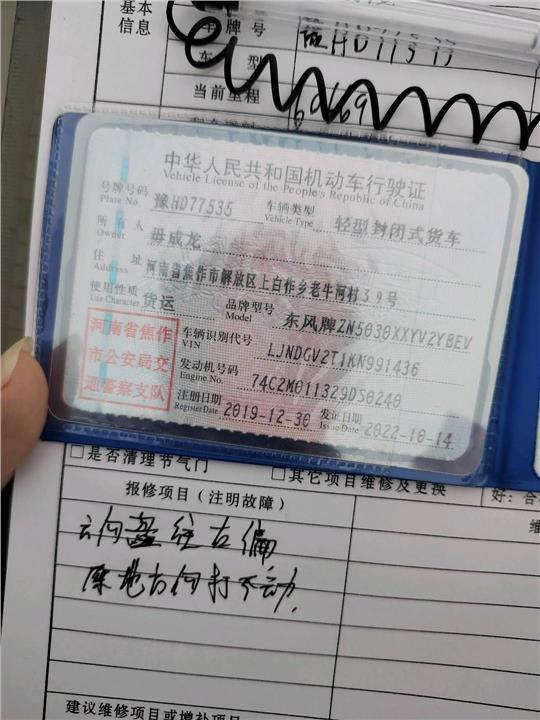 基本
信息
车牌号
豫HD77535
车 型
当前里程
中华人民共和国机动车行驶证
Vehicle License of the People's Republic of China
号牌号码 豫HD77535 车辆类型 轻型封闭式货车
Plate No. Vehicle Type
所有人 毋成龙
Owner
住 址 河南省焦作市解放区上白作乡老牛河村39号
Address
使用性质 货运 品牌型号 东风牌ZN5030XXYV2YBEV
Use Character Model
河南省焦作
市公安局交
通警察支队
车辆识别代号 LJNDGV2T1KN991436
VIN
发动机号码 74C2M011329D50240
Engine No.
注册日期 2019-12-30 发证日期 2022-10-14
Register Date Issue Date
□是否清理节气门 □其它项目维修及更换
好:
报修项目(注明故障)
方向盘往右偏
原地方向打不动,
建议维修项目或增补项目